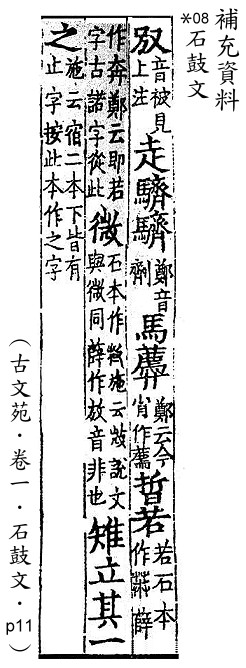 補充資料
*08石鼓文
音被見上注走鄭音劑馬鄭云今省作薦晢若若石本作薛
作奔鄭云即若字古諾字從此微石本作施云說文與微同薛作放音非也雉立其一
之施云宿二本下皆有止字按此本作之字
（古文苑・卷一・石鼓文・p11）